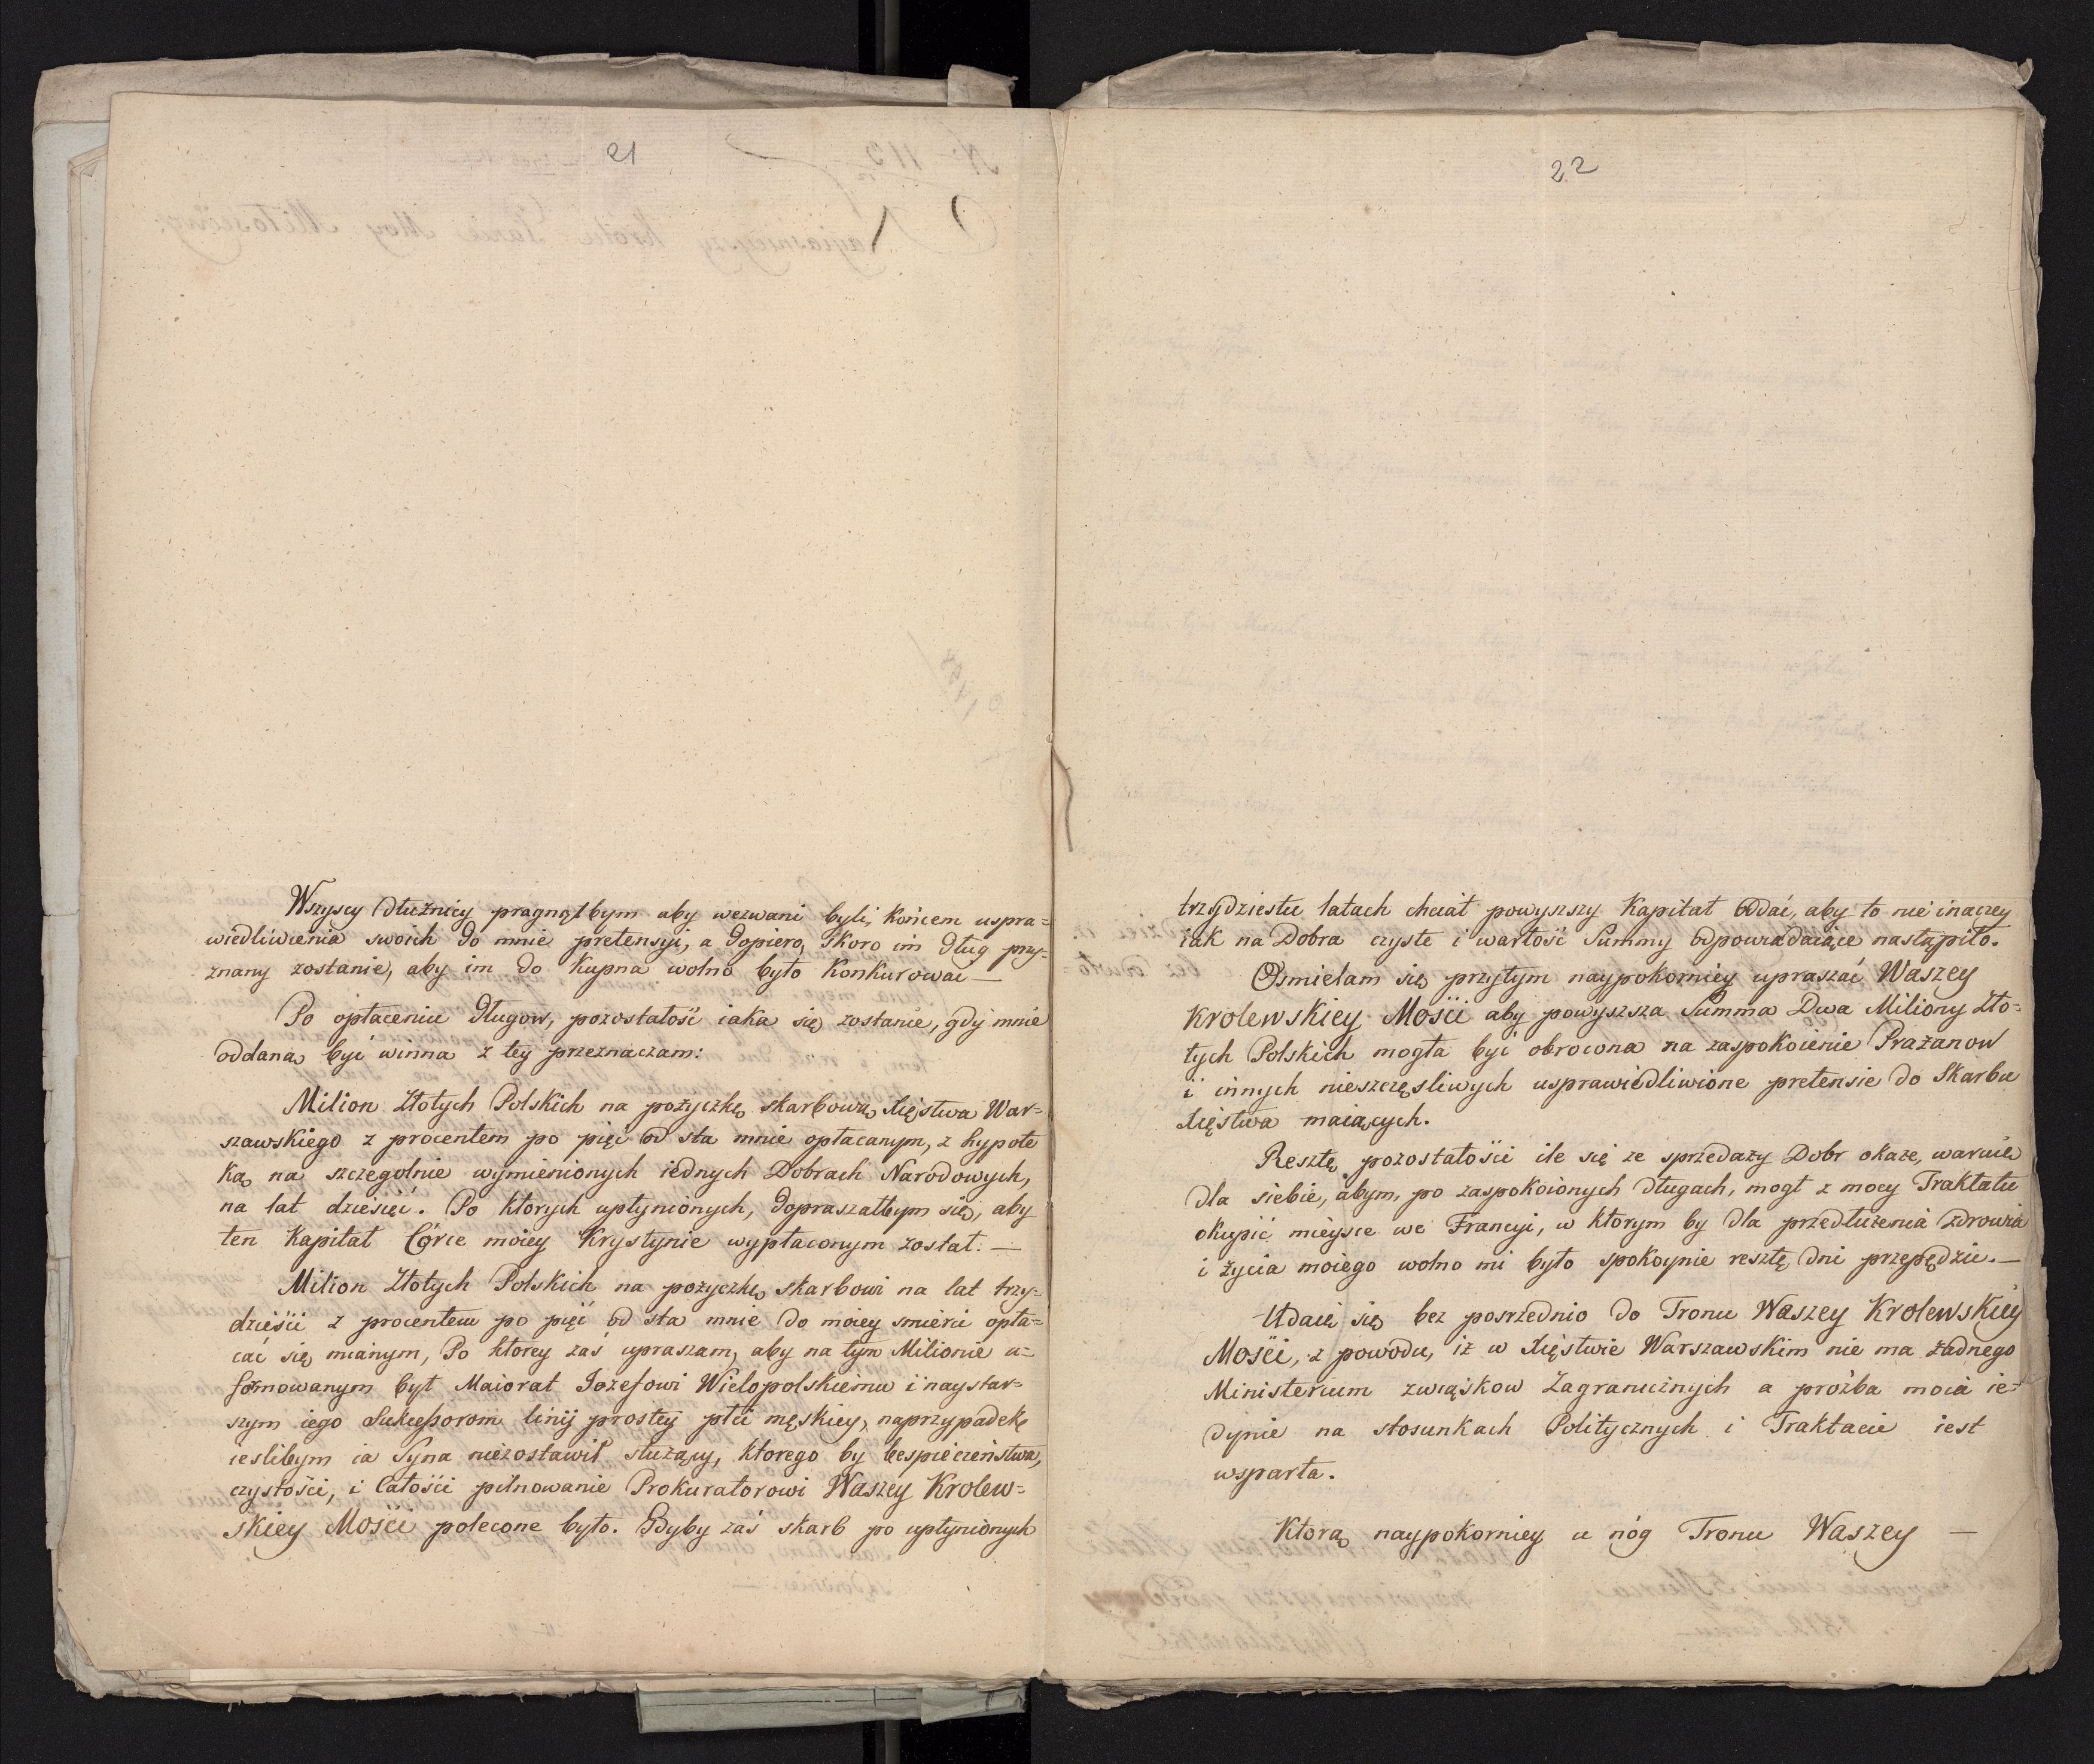 21
Wszyscy Dłużnicy pragnąłbym aby wezwani byli, końcem uspra=
wiedliwienia swoich do mnie pretensyi, a dopiero, skoro im Dług przy-
znany zostanie, aby im do kupna wolno było konkurować —
Po opłaceniu Długow, pozostałość iaka się zostanie, gdy mnie
oddaną być winna z tey przeznaczam:
Milion Złotych Polskich na pożyczkę skarbową Xięstwa War=
szawskiego z procentem po pięć od sta mnie opłacanym, z hypote
ką na szczegolnie wymienionych iednych Dobrach Narodowych,
na lat dziesięć. Po ktorych upłynionych, dopraszałbym się, aby
ten Kapitał Córce moiey Krystynie wypłaconym został. —
Milion Złotych Polskich na pożyczkę skarbowi na lat trzy=
dzieści z procentem po pięć od sta mnie do moiey smierci opła=
cać się mianym, Po ktorey zaś upraszam, aby na tym Milionie u=
formowanym był Maiorat Jozefowi Wielopolskiemu i naystar=
szym iego Sukcessorom linij prostey płci męskiey, naprzypadek
iesliбym ia Syna niezostawił służący, ktorego by bespieczeństwa,
czystości, i Całości pilnowanie Prokuratorowi Waszey Krolew=
skiey Mości polecone było. Gdyby zaś skarb po upłynionych
22
trzydziestu latach chciał powyszszy Kapitał oddać, aby to nie inaczey
iak na Dobra czyste i wartość Summy odpowiadaiące nastąpiło.
Osmielam się przytym naypokorniey upraszać Waszey
Krolewskiey Mości aby powyszsza Summa Dwa Miliony Zło=
tych Polskich mogła być obrocona na zaspokoienie Prażanow
i innych nieszczęsliwych usprawiedliwione pretensie do Skarbu
Xięstwa maiących.
Resztę pozostałości ile się ze sprzedaży Dobr okaże, waruię
dla siebie, abym, po zaspokoionych długach, mogł z mocy Traktatu
okupić mieysce we Francyi, w ktorym by dla przedłużenia zdrowia
i życia moiego wolno mi było spokoynie resztę dni przepędzić. —
Udaię się bez posrzednio do Tronu Waszey Krolewskiey
Mości, z powodu, iż w Xięstwie Warszawskim nie ma żadnego
Ministerium związkow Zagranicznych a proźba moia ie=
dynie na stosunkach Politycznych i Traktacie iest
wsparta.
Ktorą naypokorniey u nóg Tronu Waszey —